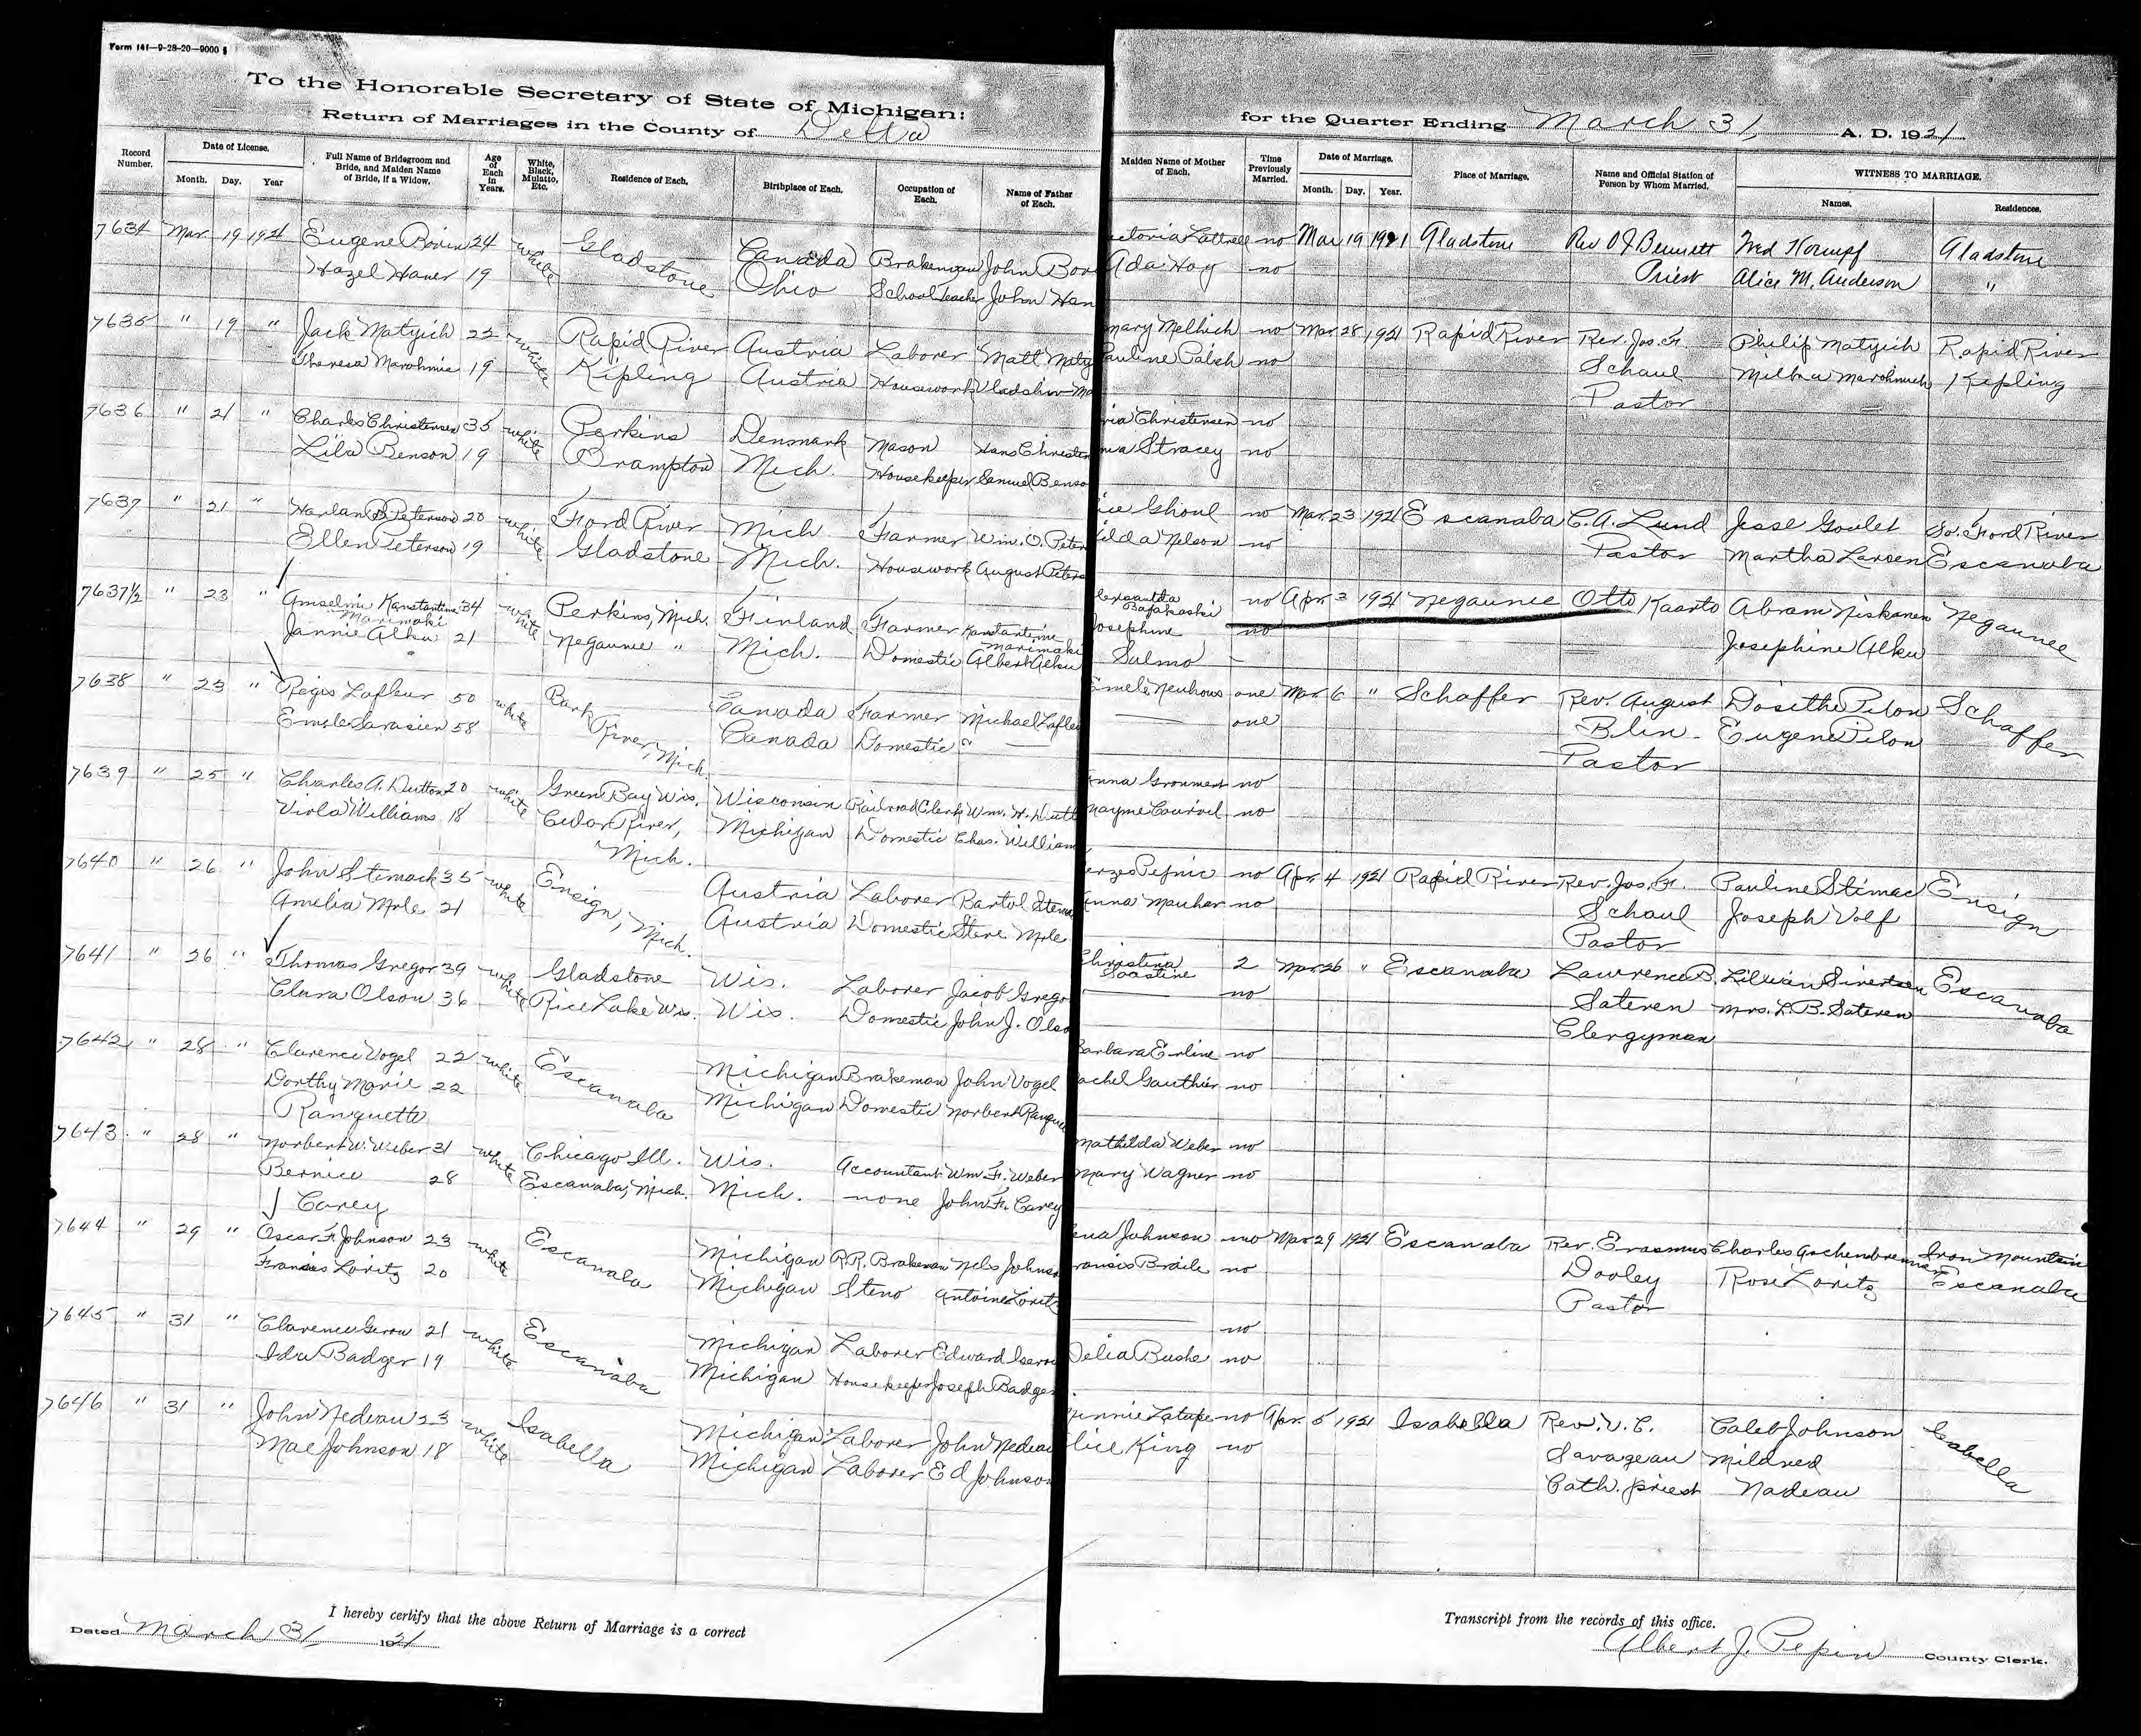 Form 141—9-28-20—9000
To the Honorable Secretary of State of Michigan:
Return of Marriages in the County of Delta for the Quarter Ending March 31, A. D. 1921
Record Number. Date of License. Month. Day. Year Full Name of Bridegroom and Bride, and Maiden Name of Bride, if a Widow. Age of Each in Years. White, Black, Mulatto, Etc. Residence of Each. Birthplace of Each. Occupation of Each. Name of Father of Each. Maiden Name of Mother of Each. Time Previously Married. Date of Marriage. Month. Day. Year. Place of Marriage. Name and Official Station of Person by Whom Married. WITNESS TO MARRIAGE. Names. Residences.
7634 Mar 19 1921 Eugene 24 white Gladstone Canada Brakeman John no Mar 19 1921 Gladstone Rev O J Bennett Gladstone
Hazel Haner 19 Ohio School Teacher John Han Ada Hoy no Priest Alice M. Anderson "
7635 " 19 " Jack Matyich 22 white Rapid River Austria Laborer Matt Maty Mary Melhich no Mar. 28 1921 Rapid River Rev. Jos. F. Philip Matyich Rapid River
Theresa 19 Kipling Austria Housework Pauline no Schaul Kipling
Pastor
7636 " 21 " Charles Christensen 35 white Perkins Denmark Mason Hans Christen ria Christensen no
Lila Benson 19 Brampton Mich. Housekeeper Samuel Benso Stracey no
7637 " 21 " Harland Peterson 20 white Ford River Mich. Farmer Wm. O. Peter Ghoul no Mar. 23 1921 Escanaba C. A. Lund Jesse Goulet So. Ford River
Ellen Peterson 19 Gladstone Mich. Housework August Peters ilda Nelson no Pastor Martha Larsen Escanaba
7637½ " 23 " Konstantine 34 white Perkins, Mich. Finland Farmer Konstantine no Apr. 3 1921 Negaunee Otto Kaarto Abram Niskanen Negaunee
Marimaki Marimaki Josephine no
Jannie Alku 21 Negaunee " Mich. Domestic Albert Alku Salmo - Josephine Alku
7638 " 23 " Regis Lafleur 50 white Bark River, Mich. Canada Farmer Michael Lafleu one Mar. 6 " Schaffer Rev. August Dosithe Pilon Schaffer
Sarasien 58 Canada Domestic one Blin- Eugene Pilon
Pastor
7639 " 25 " Charles A. Dutton 20 white Green Bay Wis. Wisconsin Railroad Clerk Wm. H. Dutt no
Viola Williams 18 Cedar River, Michigan Domestic Chas. William no
Mich.
7640 " 26 " John Stemack 35 white Ensign, Mich. Austria Laborer Bartol Stema no Apr. 4 1921 Rapid River Rev. Jos. F. Pauline Stimac Ensign
Amelia Mrle 21 Austria Domestic Steve Mrle no Schaul Joseph Volf
Pastor
7641 " 26 " Thomas Gregor 39 white Gladstone Wis. Laborer Jacob Grego Christina 2 Mar. 26 " Escanaba Lawrence B. Lillian Sivertsen Escanaba
Clara Olson 36 Rice Lake Wis. Wis. Domestic John J. Olso no Sateren Mrs. L. B. Sateren
Clergyman
7642 " 28 " Clarence Vogel 22 white Escanaba Michigan Brakeman John Vogel Barbara Erline no
Dorthy Marie 22 Michigan Domestic Norbert Rangue achel Gauthier no
Ranguette
7643 " 28 " Norbert W. Weber 31 white Chicago Ill. Wis. Accountant Wm. F. Weber Mathilda Weber no
Bernice 28 Escanaba, Mich. Mich. none John F. Carey Mary Wagner no
Carey
7644 " 29 " Oscar F. Johnson 23 white Escanaba Michigan R.R. Brakeman Nels Johnso Johnson no Mar 29 1921 Escanaba Rev. Erasmus Charles Iron Mountain
Frances Loritz 20 Michigan Steno Antoine Lorit no Dooley Rose Loritz Escanaba
Pastor
7645 " 31 " Clarence 21 white Escanaba Michigan Laborer Edward no
Ida Badger 19 Michigan Housekeeper Joseph Badger Delia Bushe no
7646 " 31 " John Nedeau 23 white Isabella Michigan Laborer John Nedeau no Apr. 5 1921 Isabella Rev. V. C. Caleb Johnson Isabella
Mae Johnson 18 Michigan Laborer Ed Johnson lice King no Savageau Mildred
Cath. priest Nadeau
I hereby certify that the above Return of Marriage is a correct Transcript from the records of this office.
Dated March 31 1921 Albert J. Pepin County Clerk.